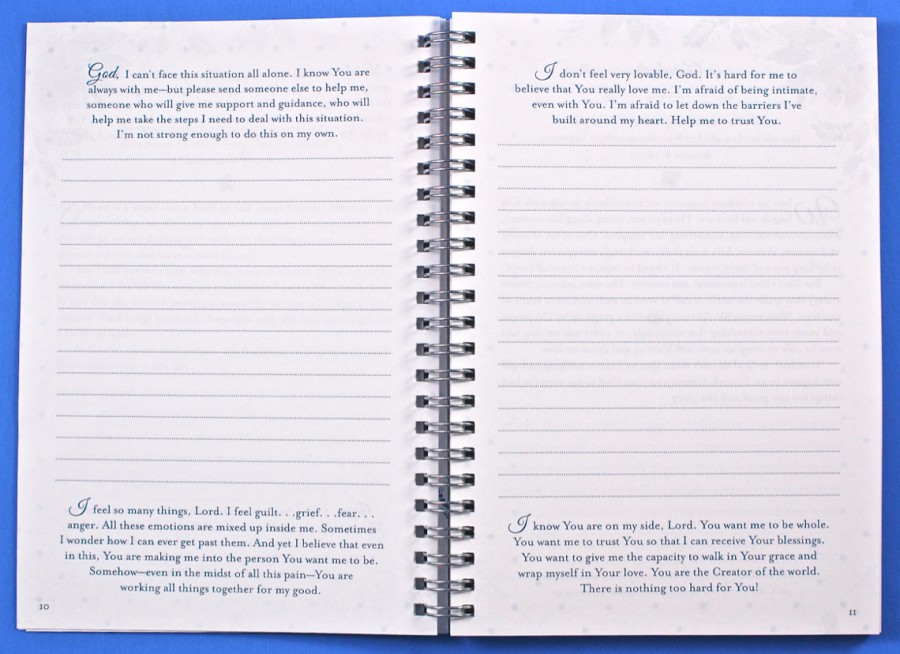 God, I can't face this situation all alone. I know You are
always with me—but please send someone else to help me,
someone who will give me support and guidance, who will
help me take the steps I need to deal with this situation.
I'm not strong enough to do this on my own.
I feel so many things, Lord. I feel guilt. . .grief. . .fear. . .
anger. All these emotions are mixed up inside me. Sometimes
I wonder how I can ever get past them. And yet I believe that even
in this, You are making me into the person You want me to be.
Somehow—even in the midst of all this pain—You are
working all things together for my good.
10
I don't feel very lovable, God. It's hard for me to
believe that You really love me. I'm afraid of being intimate,
even with You. I'm afraid to let down the barriers I've
built around my heart. Help me to trust You.
I know You are on my side, Lord. You want me to be whole.
You want me to trust You so that I can receive Your blessings.
You want to give me the capacity to walk in Your grace and
wrap myself in Your love. You are the Creator of the world.
There is nothing too hard for You!
11